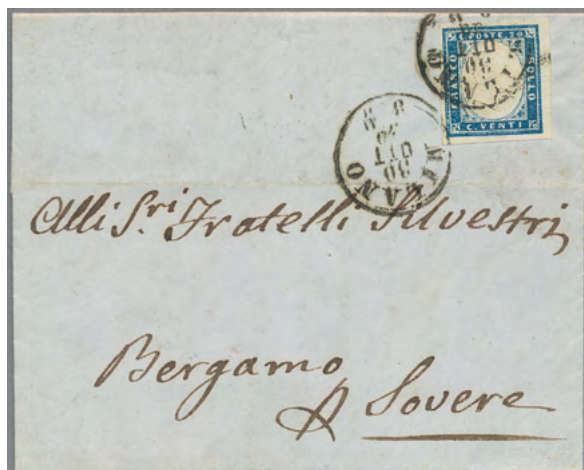 C. POSTE 20
FRANCO
BOLLO
C. VENTI
MILANO
30
OTT
Alli S.ri Fratelli Silvestri
Bergamo
p Sovere